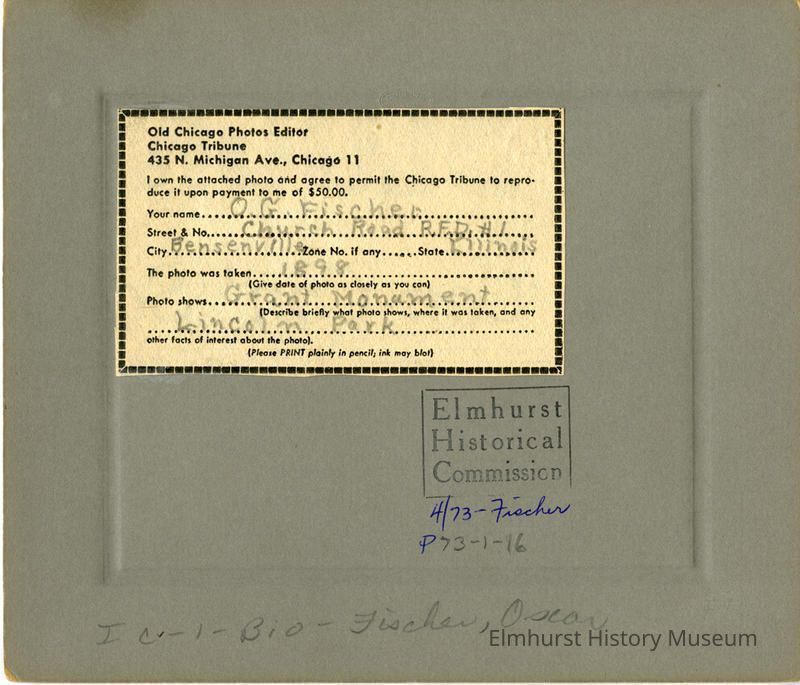 Old Chicago Photos Editor
Chicago Tribune
435 N. Michigan Ave., Chicago 11
I own the attached photo and agree to permit the Chicago Tribune to repro-
duce it upon payment to me of $50.00.
Your name....O. G. Fischer
Street & No....Church Road R.F.D. #1
City Bensenville Zone No. if any......State Illinois
The photo was taken....1898
(Give date of photo as closely as you can)
Photo shows....Grant Monument
(Describe briefly what photo shows, where it was taken, and any
Lincoln Park
other facts of interest about the photo).
(Please PRINT plainly in pencil; ink may blot)
Elmhurst
Historical
Commission
4/73-Fischer
P73-1-16
I C-1-Bio-Fischer, Oscar
Elmhurst History Museum